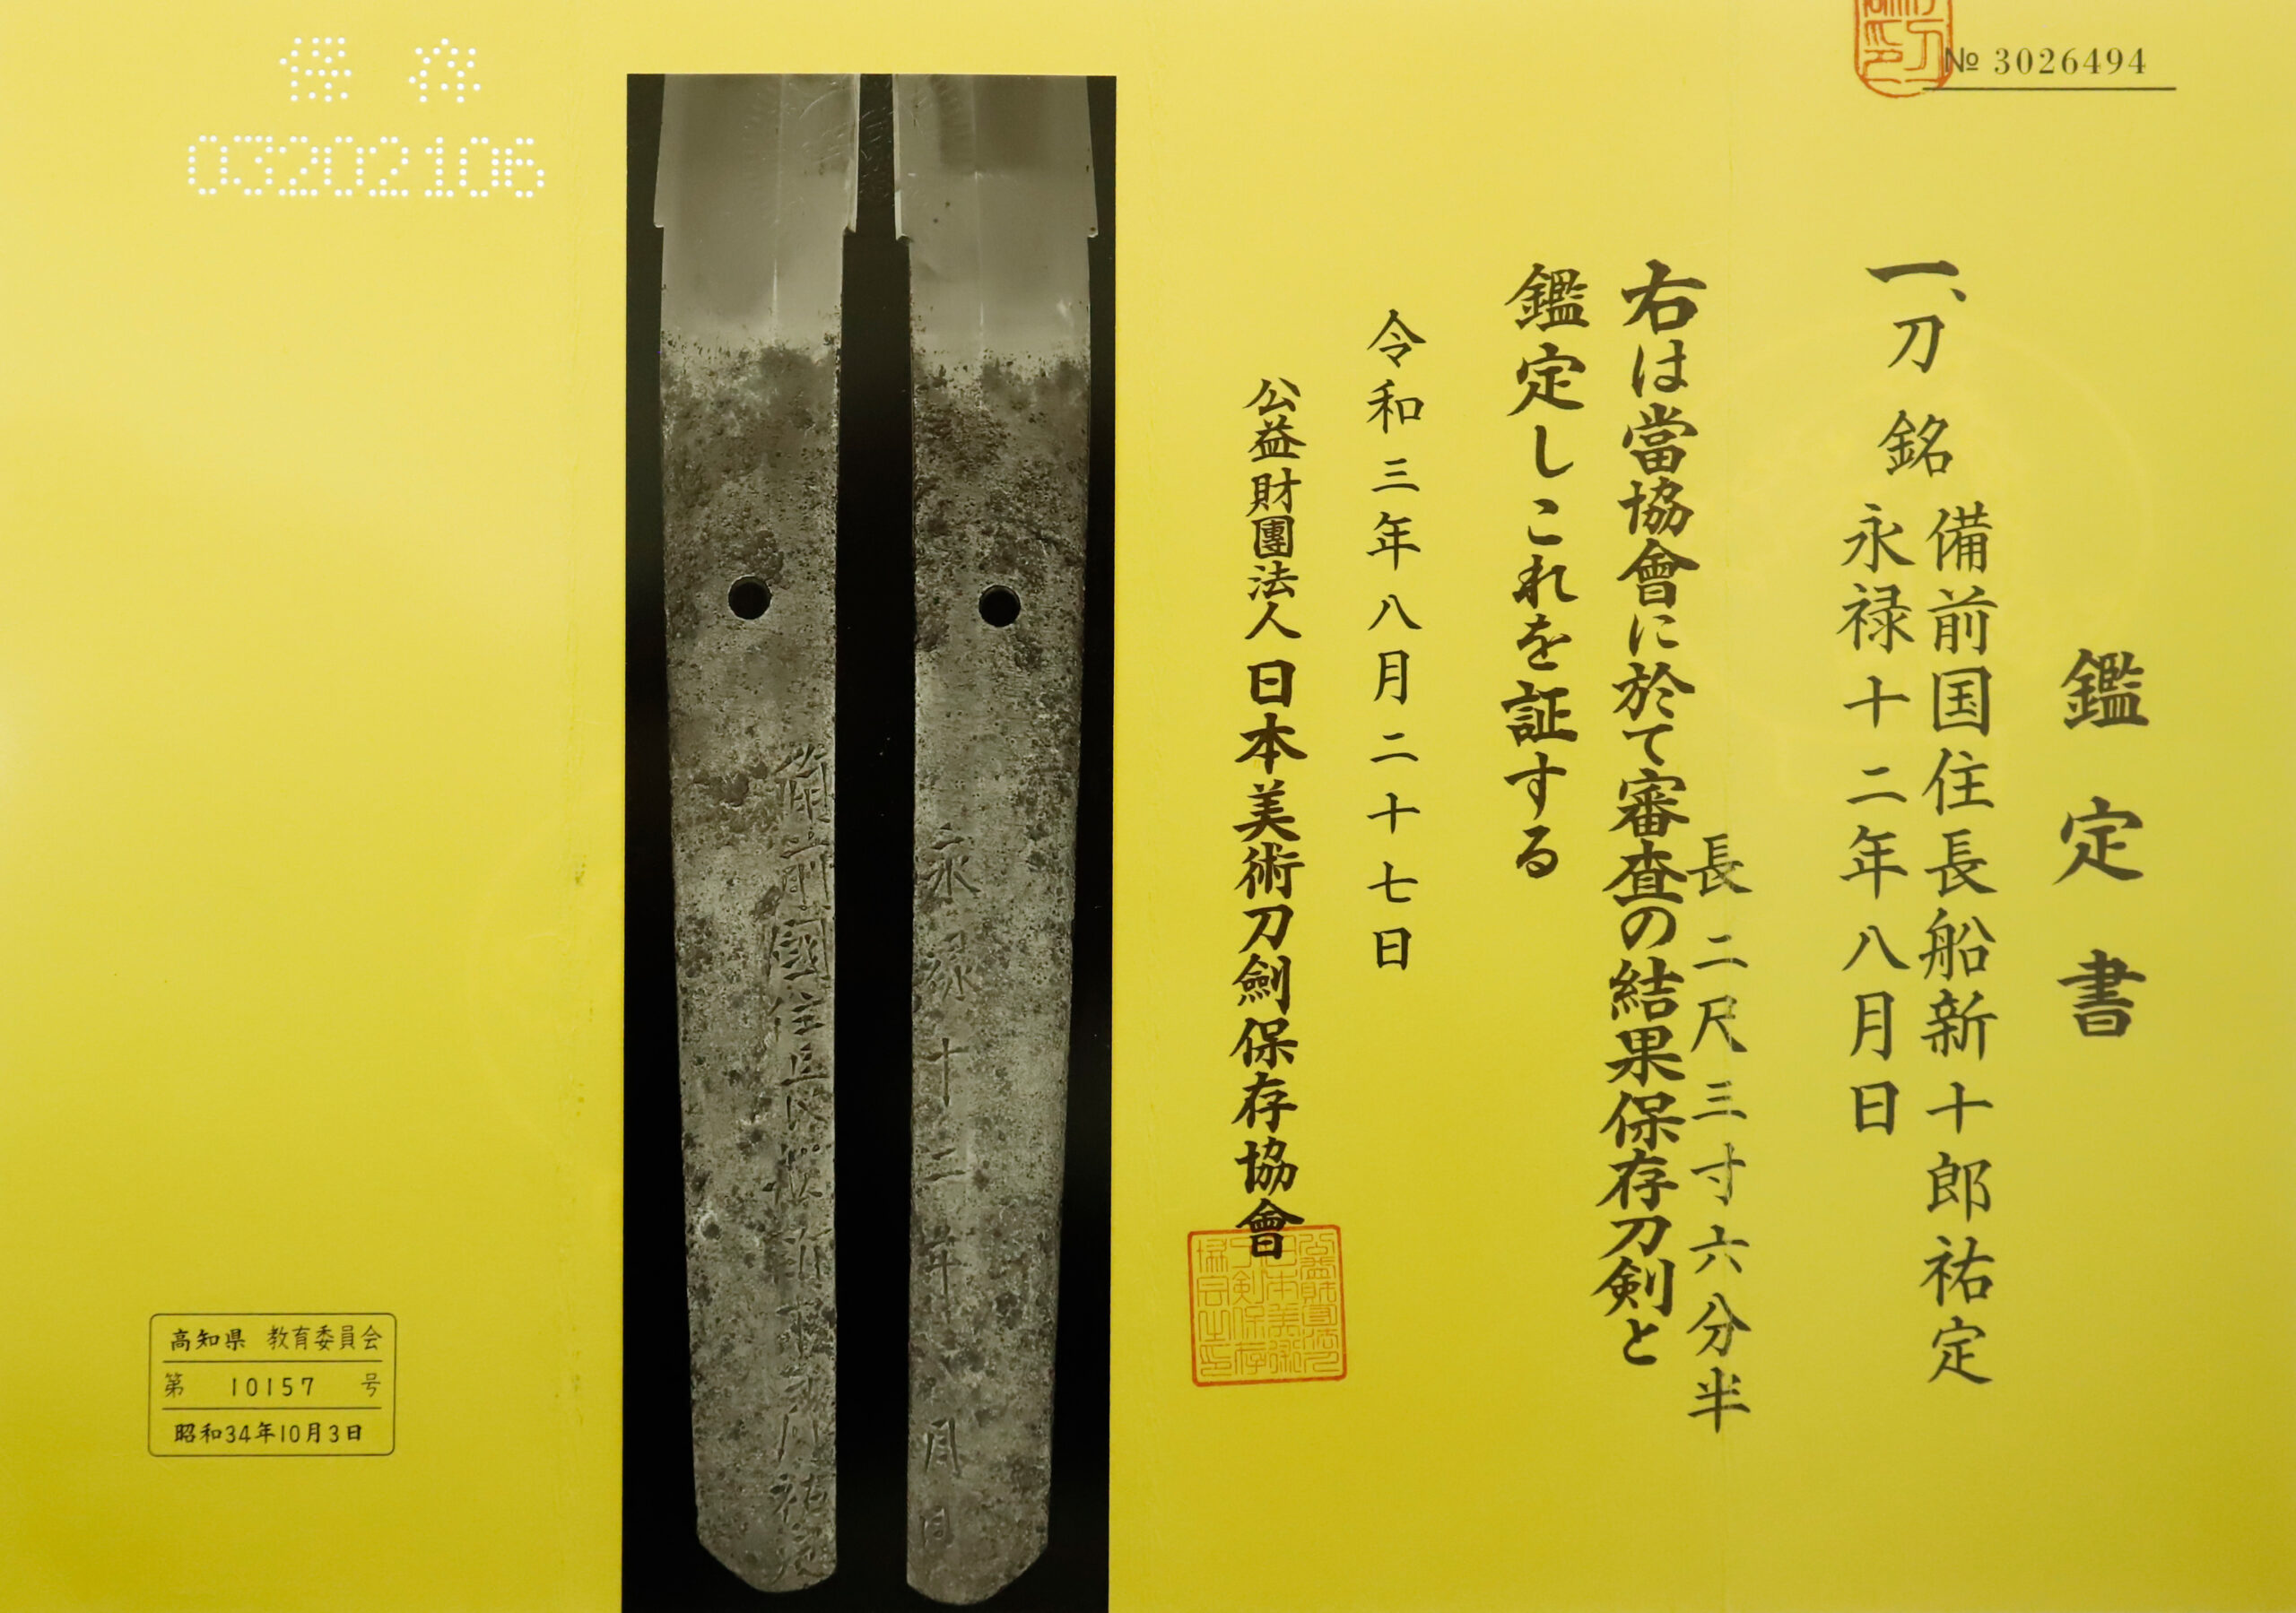 № 3026494
鑑定書
一、刀 銘 備前国住長船新十郎祐定
永禄十二年八月日
長二尺三寸六分半
右は當協會に於て審査の結果保存刀剣と
鑑定しこれを証する
令和三年八月二十七日
公益財團法人日本美術刀劍保存協會
保存
03202106
高知県 教育委員会
第 10157 号
昭和34年10月3日
永禄十二年八月日